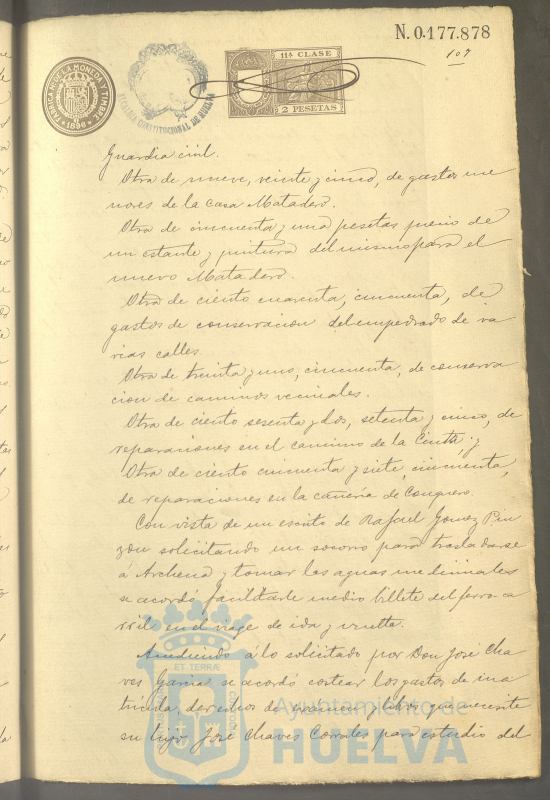 N. 0.177.878
107
FABRICA NAL DE LA MONEDA Y TIMBRE
1896
ALCALDIA CONSTITUCIONAL DE HUELVA
11ª CLASE
2 PESETAS
Guardia civil.
Otra de nueve, veinte y cinco, de gastos me
nores de la casa Matadero.
Otra de cincuenta y una pesetas precio de
un estante y pintura del mismo para el
nuevo Matadero.
Otra de ciento cuarenta, cincuenta, de
gastos de conservacion del empedrado de va
rias calles.
Otra de treinta y uno, cincuenta, de conserva
cion de caminos vecinales.
Otra de ciento sesenta y dos, setenta y cinco, de
reparaciones en el camino de la Cinta; y
Otra de ciento cincuenta y siete, cincuenta,
de reparaciones en la cañeria de Conquero.
Con vista de un escrito de Rafael Gomez Pin
zon solicitando un socorro para trasladarse
á Archena y tomar las aguas medicinales
se acordó facilitarle medio billete del ferro-ca
rril en el viage de ida y vuelta.
Accediendo á lo solicitado por Don José Cha
ves Garcia se acordó costear los gastos de ma
tricula, derechos de examen y libros que necesite
su hijo José Chaves Corrales para estudio del
ET TERRÆ
Ayuntamiento de
HUELVA